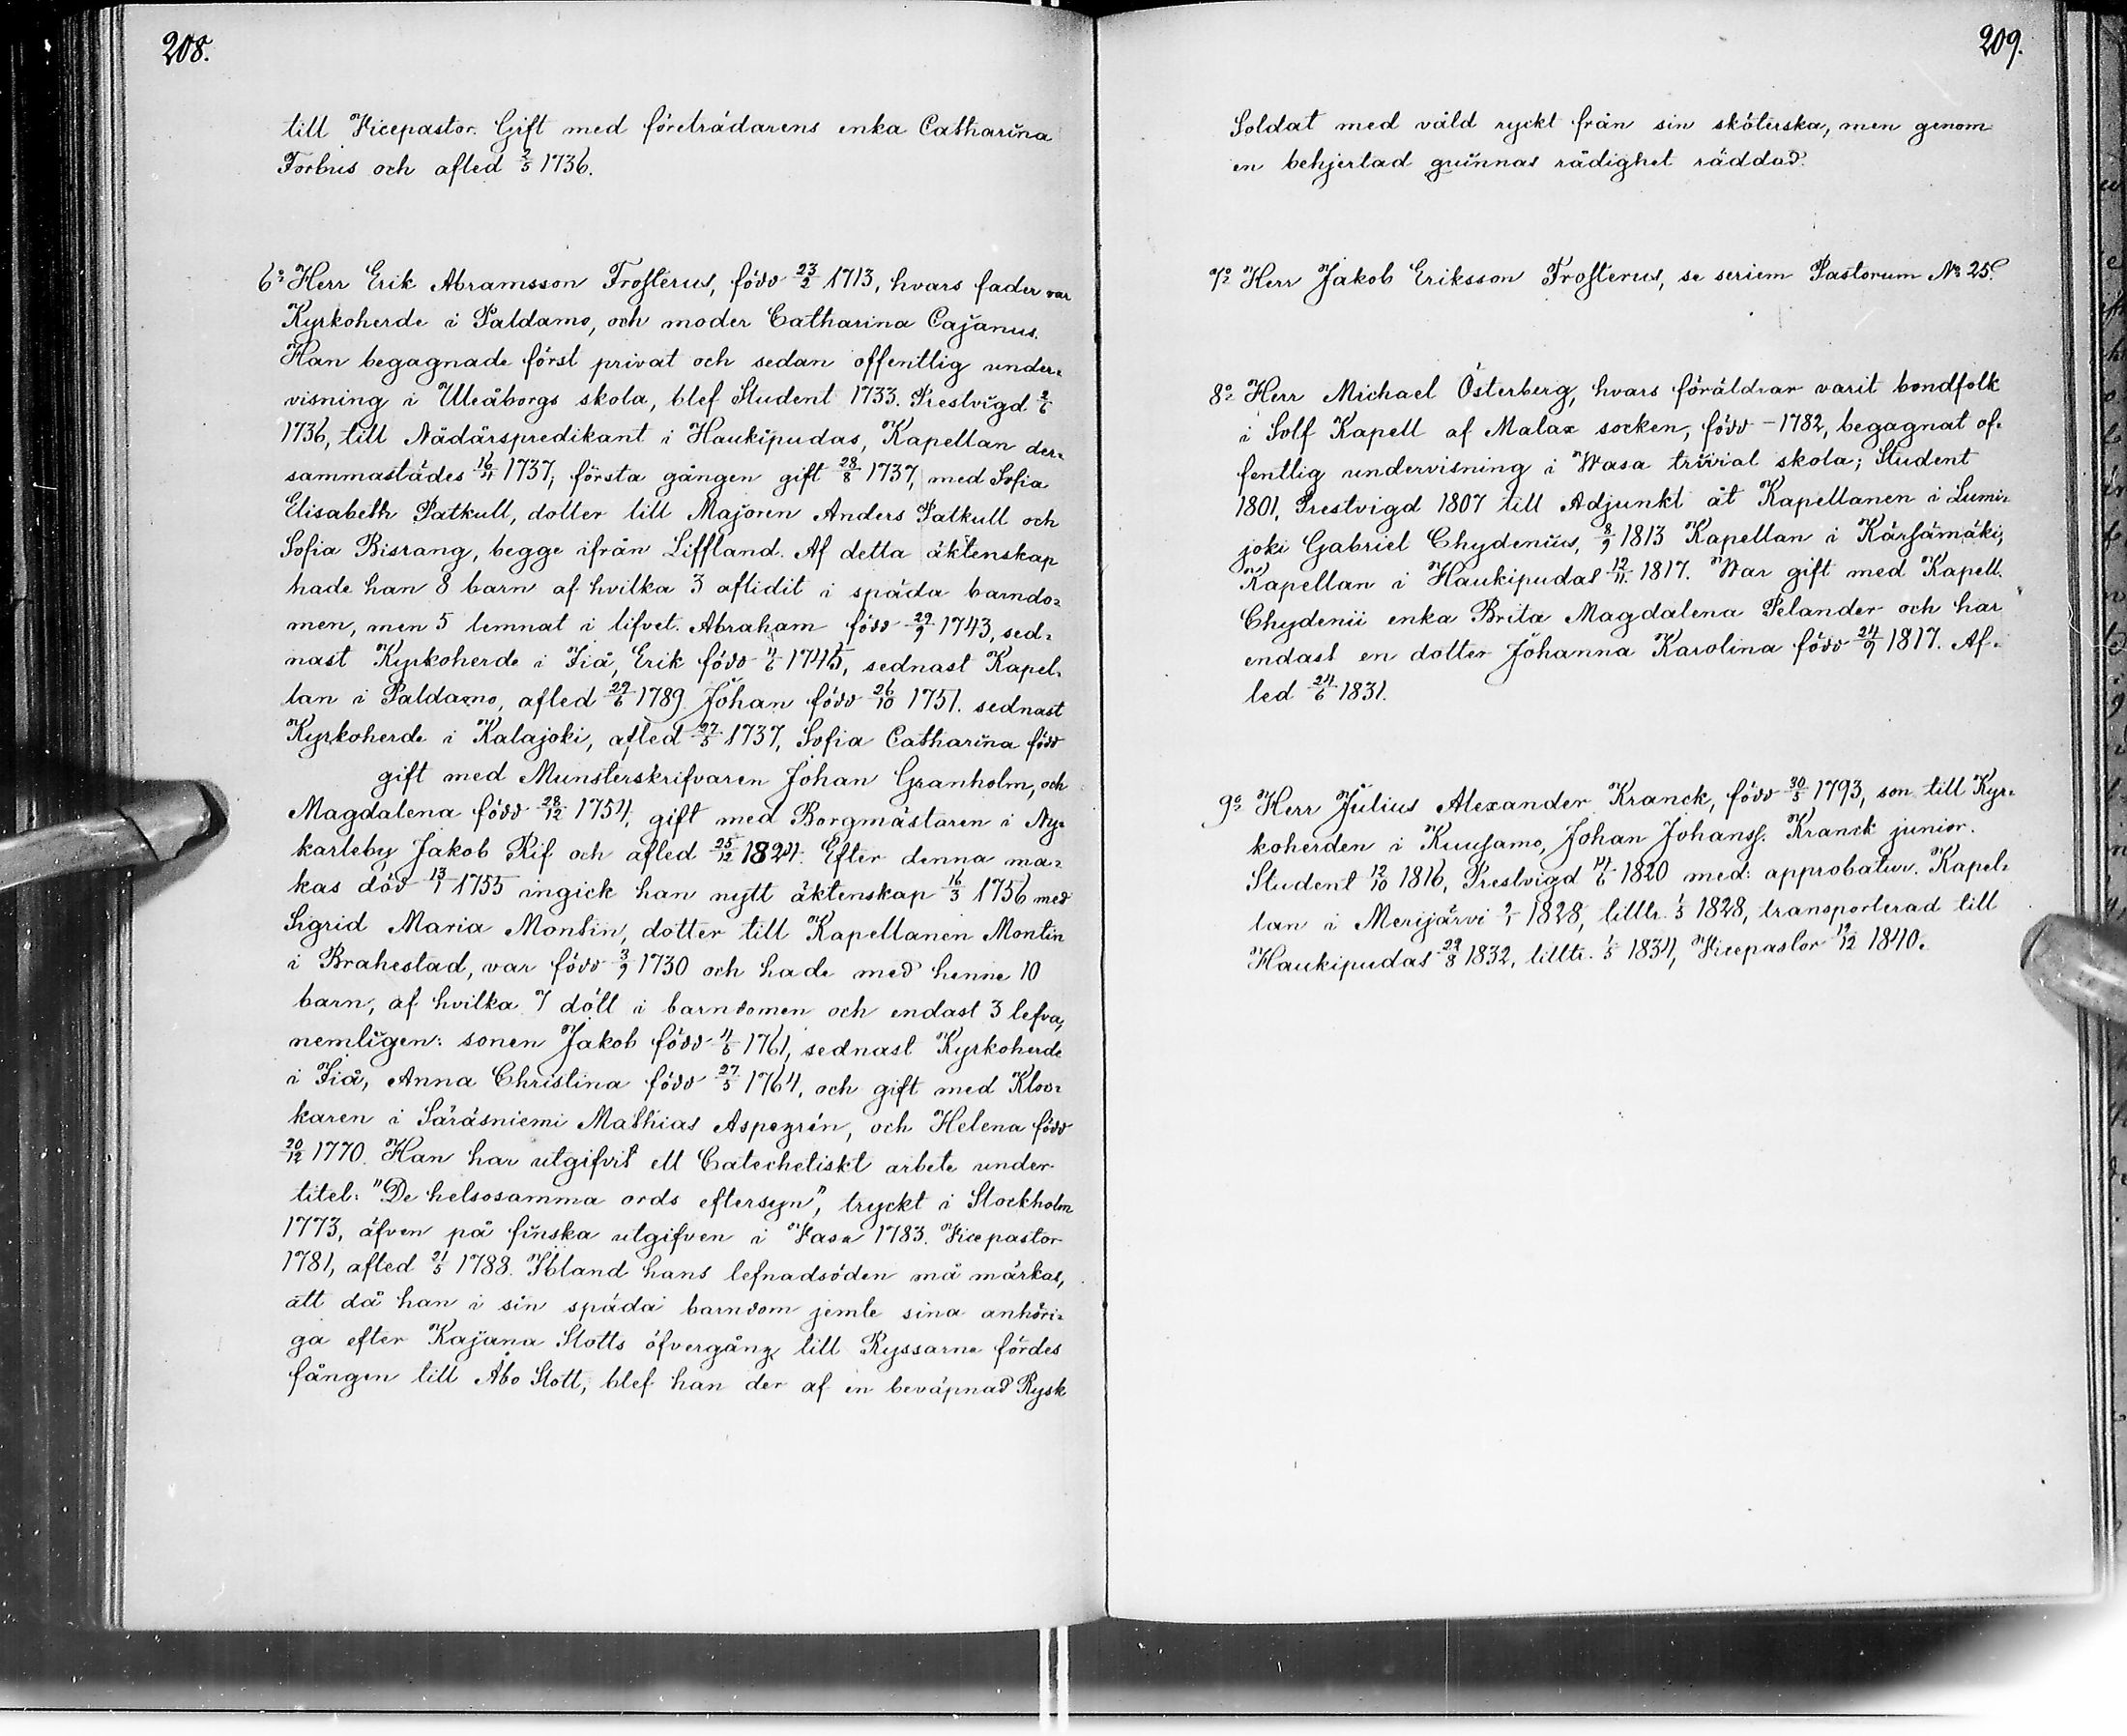 208.
till Vicepastor. Gift med företrädarens enka Catharina
Forbus och afled 2/5 1736.
6º Herr Erik Abramsson Frosterus, född 23/2 1713, hvars fader var
Kyrkoherde i Paldamo, och moder Catharina Cajanus.
Han begagnade först privat och sedan offentlig under=
visning i Uleåborgs skola, blef Student 1733. Prestvigd 2/6
1736, till Nådårspredikant i Haukipudas, Kapellan der=
sammastädes 16/4 1737, första gången gift 28/8 1737, med Sofia
Elisabeth Patkull, dotter till Majoren Anders Patkull och
Sofia Bisrang, begge ifrån Liffland. Af detta äktenskap
hade han 8 barn af hvilka 3 aflidit i späda barndo=
men, men 5 lemnat i lifvet. Abraham född 29/9 1743, sed=
nast Kyrkoherde i Iiå, Erik född 11/6 1745, sednast Kapel=
lan i Paldamo, afled 29/6 1789. Johan född 26/10 1751. sednast
Kyrkoherde i Kalajoki, afled 27/5 1737, Sofia Catharina född
gift med Munsterskrifvaren Johan Granholm, och
Magdalena född 28/12 1754, gift med Borgmästaren i Ny=
karleby Jakob Rif och afled 25/12 1824. Efter denna ma=
kas död 13/1 1755 ingick han nytt äktenskap 16/3 1756 med
Sigrid Maria Montin, dotter till Kapellanen Montin
i Brahestad, var född 3/9 1730 och hade med henne 10
barn, af hvilka 7 dött i barndomen och endast 3 lefva,
nemligen: sonen Jakob född 11/6 1761, sednast Kyrkoherde
i Iiå, Anna Christina född 27/5 1764, och gift med Kloc=
karen i Säräsniemi Mathias Aspegrén, och Helena född
20/12 1770. Han har utgifvit ett Catechetiskt arbete under
titel: "De helsosamma ords eftersyn", tryckt i Stockholm
1773, äfven på finska utgifven i Vasa 1783. Vicepastor
1781, afled 21/5 1788. Ibland hans lefnadsöden må märkas,
att då han i sin späda barndom jemte sina anhöri=
ga efter Kajana Slotts öfvergång till Ryssarne fördes
fången till Åbo Slott, blef han der af en beväpnad Rysk
209.
Soldat med våld ryckt från sin sköterska, men genom
en behjertad qvinnas rådighet räddad.
7º Herr Jakob Eriksson Frosterus, se seriem Pastorum Nº 25.
8º Herr Michael Österberg, hvars föräldrar varit bondfolk
i Solf Kapell af Malax socken, född - 1782, begagnat of=
fentlig undervisning i Wasa trivial skola; Student
1801, Prestvigd 1807 till Adjunkt åt Kapellanen i Lumi=
joki Gabriel Chydenius, 8/9 1813 Kapellan i Kärsämäki,
Kapellan i Haukipudas 12/11 1817. War gift med Kapell.
Chydenii enka Brita Magdalena Pelander och har
endast en dotter Johanna Karolina född 24/9 1817. Af=
led 24/6 1831.
9º Herr Julius Alexander Kranck, född 30/5 1793, son till Kyr=
koherden i Kuusamo, Johan Johanss. Kranck junior.
Student 12/10 1816, Prestvigd 14/6 1820 med: approbatur. Kapel=
lan i Merijärvi 2/1 1828, tilltr. 1/5 1828, transporterad till
Haukipudas 29/8 1832, tilltr. 1/5 1834, Vicepastor 19/12 1840.